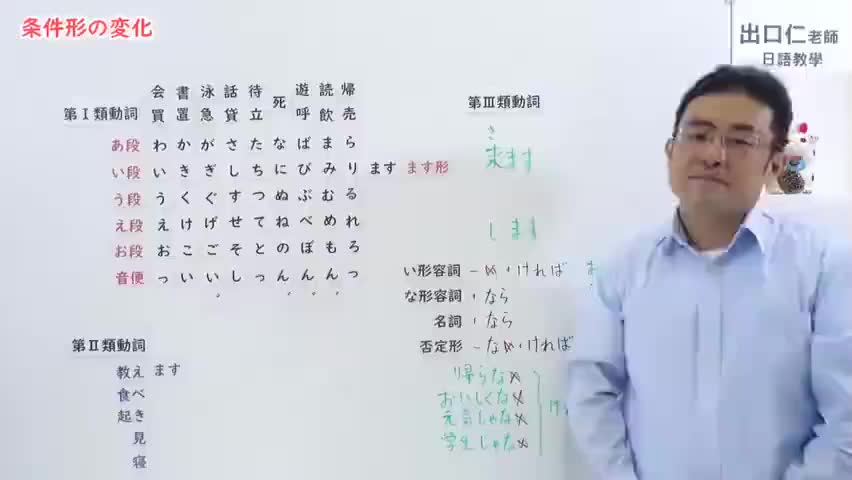 条件形の変化
出口仁老師
日語教學
会 書 泳 話 待 死 遊 読 帰
買 置 急 貸 立 呼 飲 売
第Ⅰ類動詞
あ段 わ か が さ た な ば ま ら
い段 い き ぎ し ち に び み り ます ます形
う段 う く ぐ す つ ぬ ぶ む る
え段 え け げ せ て ね べ め れ
お段 お こ ご そ と の ぼ も ろ
音便 っ い い し っ ん ん ん っ
第Ⅱ類動詞
教え ます
食べ
起き
見
寝
第Ⅲ類動詞
き
来ます
します
い形容詞 -い・ければ
な形容詞・なら
名詞・なら
否定形 -ない・ければ
帰らない
おいしくない
元気じゃない
学生じゃない